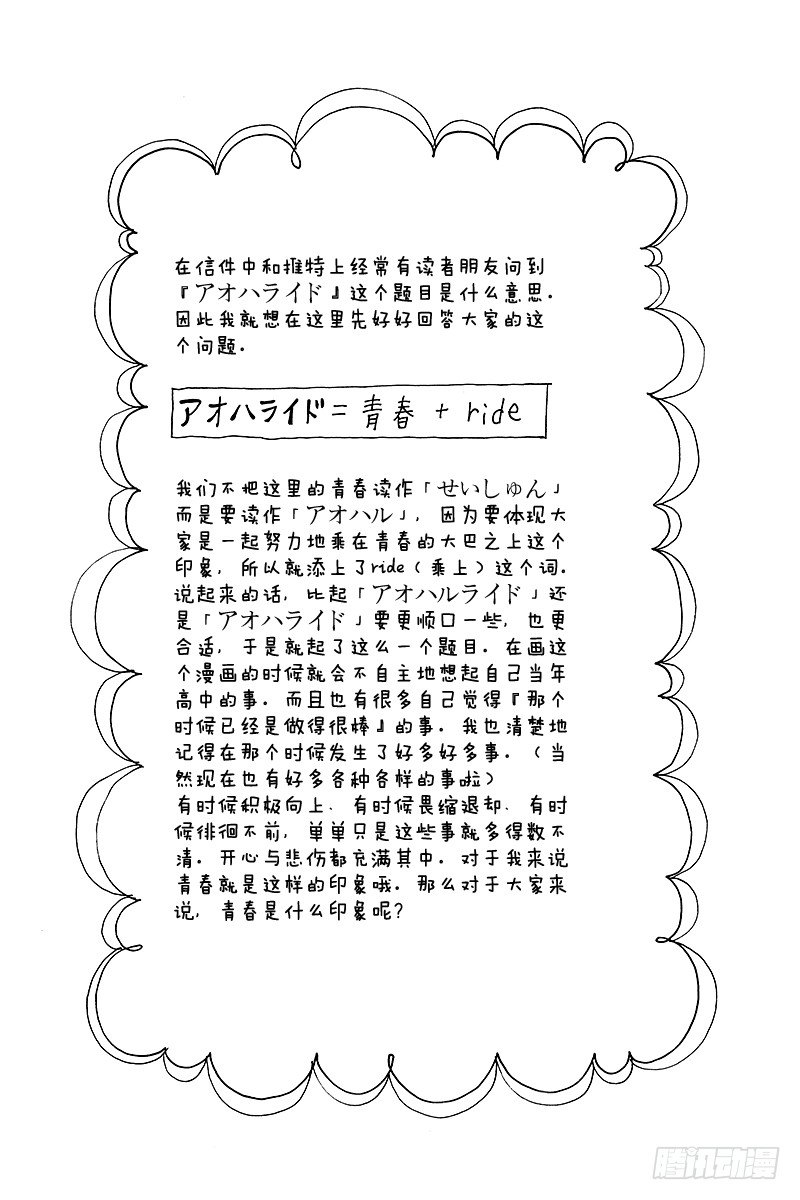 在信件中和推特上经常有读者朋友问到
『アオハライド』这个题目是什么意思.
因此我就想在这里先好好回答大家的这
个问题.
アオハライド = 青春 + ride
我们不把这里的青春读作「せいしゅん」
而是要读作「アオハル」, 因为要体现大
家是一起努力地乘在青春的大巴之上这个
印象, 所以就添上了ride(乘上)这个词.
说起来的话, 比起「アオハルライド」还
是「アオハライド」要更顺口一些, 也更
合适, 于是就起了这么一个题目. 在画这
个漫画的时候就会不自主地想起自己当年
高中的事. 而且也有很多自己觉得『那个
时候已经是做得很棒』的事. 我也清楚地
记得在那个时候发生了好多好多事. (当
然现在也有好多各种各样的事啦)
有时候积极向上、有时候畏缩退却、有时
候徘徊不前, 单单只是这些事就多得数不
清. 开心与悲伤都充满其中. 对于我来说
青春就是这样的印象哦. 那么对于大家来
说, 青春是什么印象呢?
腾讯动漫